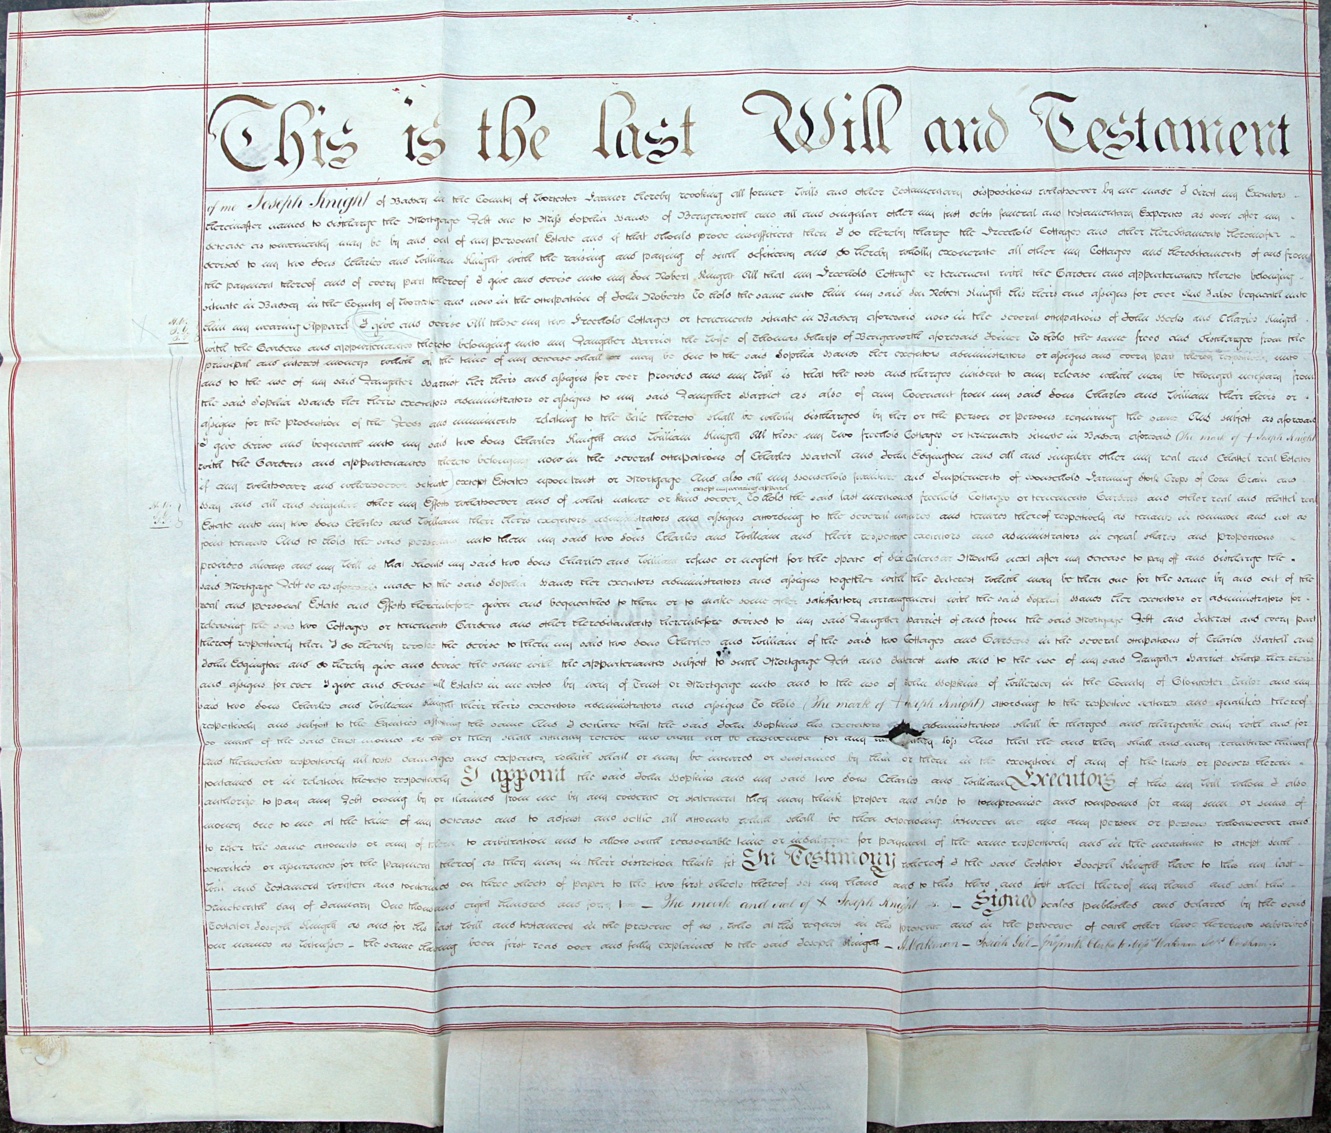 This is the last Will and Testament
of me Joseph Knight of Badsey in the County of Worcester Farmer hereby revoking all former Wills and other Testamentary dispositions whatsoever by me made I direct my Executors
hereinafter named to discharge the Mortgage Debt due to Miss Sophia Bands of Bengeworth and all and singular other my just debts funeral and testamentary Expences as soon after my
decease as conveniently may be by and out of my personal Estate and if that should prove insufficient then I do hereby charge the Freehold Cottages and other Hereditaments hereinafter
devised to my two Sons Charles and William Knight with the raising and paying of such deficiency and do hereby wholly exonerate all other my Cottages and Hereditaments of and from
the payment thereof and of every part thereof I give and devise unto my Son Robert Knight All that my Freehold Cottage or tenement with the Garden and appurtenances thereto belonging
situate in Badsey in the County of Worcester and now in the occupation of John Roberts To hold the same unto him my said Son Robert Knight his heirs and assigns for ever And I also bequeath unto
him my wearing Apparel I give and devise All those my two Freehold Cottages or tenements situate in Badsey aforesaid now in the several occupations of John and Charles Knight
with the Gardens and appurtenances thereto belonging unto my Daughter Harriet the Wife of Thomas Sharp of Bengeworth aforesaid To hold the same freed and discharged from the
principal and interest money which at the time of my decease shall or may be due to the said Sophia Bands her executors administrators or assigns and every part thereof unto
and to the use of my said Daughter Harriet her heirs and assigns for ever Provided and my Will is that the costs and charges incident to any release which may be thought necessary from
the said Sophia Bands her heirs executors administrators or assigns to my said Daughter Harriet as also of any Covenant from my said Sons Charles and William their heirs or
assigns for the production of the Deeds and muniments relating to the title thereto shall be wholly discharged by her or the person or persons requiring the same And subject as aforesaid
I give devise and bequeath unto my said two Sons Charles Knight and William Knight All those my two freehold Cottages or tenements situate in Badsey aforesaid (The mark of + Joseph Knight
with the Gardens and appurtenances thereto belonging now in the several occupations of Charles Wartell and John Edgington and all and singular other my real and Chattel real Estates
if any whatsoever and wheresoever situate (except Estates upon trust or Mortgage) And also all my Household furniture and Implements of Household Farming Stock Crops of Corn Grain and
Hay and all and singular other my Effects whatsoever and of what nature or kind soever To hold the said last mentioned freehold Cottages or tenements Gardens and other real and chattel real
Estate unto my two Sons Charles and William their heirs executors administrators and assigns according to the several natures and tenures thereof respectively as tenants in common and not as
joint tenants And to hold the said personal unto them my said two Sons Charles and William and their respective executors and administrators in equal shares and proportions
provided always and my Will is that should my said two Sons Charles and William refuse or neglect for the space of Six Calendar Months next after my decease to pay off and discharge the
said Mortgage Debt so as aforesaid made to the said Sophia Bands her executors administrators and assigns together with the Interest which may be then due for the same by and out of the
real and personal Estate and Effects hereinbefore given and bequeathed to them or to make some other satisfactory arrangement with the said Sophia Bands her executors or administrators for
releasing the said two Cottages or tenements Gardens and other Hereditaments hereinbefore devised to my said Daughter Harriet of and from the said Mortgage Debt and Interest and every part
thereof respectively then I do hereby revoke the devise to them my said two Sons Charles and William of the said two Cottages and Gardens in the several occupations of Charles Wartell and
John Edgington and do hereby give and devise the same with the appurtenances subject to such Mortgage Debt and Interest unto and to the use of my said Daughter Harriet Sharp her heirs
and assigns for ever I give and devise all Estates in me vested by way of Trust or Mortgage unto and to the use of John Hopkins of Willersey in the County of Gloucester and my
said two Sons Charles and William Knight their heirs executors administrators and assigns To hold (The mark of + Joseph Knight) according to the respective natures and qualities thereof
respectively and subject to the Equities affecting the same And I declare that the said John Hopkins his executors administrators shall be charged and chargeable only with and for
so much of the said Trust monies as he or they shall actually receive and shall not be answerable for any loss And that he and they shall and may reimburse himself
and themselves respectively all costs damages and expences which shall or may be incurred or sustained by him or them in the execution of any of the trusts or powers herein
contained or in relation thereto respectively I appoint the said John Hopkins and my said two Sons Charles and William Executors of this my Will whom I also
authorize to pay any Debt owing by or claimed from me by any evidence or statement they may think proper and also to compromise and compound for any sum or sums of
money due to me at the time of my decease and to adjust and settle all accounts which shall be then depending between me and any person or persons whomsoever and
to refer the same accounts or any of them to arbitration and to allow such reasonable time or indulgence for payment of the same respectively and in the meantime to accept such
securities or assurance for the payment thereof as they may in their discretion think fit In Testimony whereof I the said Testator Joseph Knight have to this my last
Will and Testament written and contained on three sheets of paper to the two first sheets thereof set my hand and to this third and last sheet thereof my hand and seal this
Nineteenth day of January One thousand eight hundred and forty The mark and seal of X Joseph Knight Signed sealed published and declared by the said
Testator Joseph Knight as and for his last Will and testament in the presence of us who at his request in his presence and in the presence of each other have hereunto subscribed
our names as witnesses – the same having been first read over and fully explained to the said Joseph Knight –